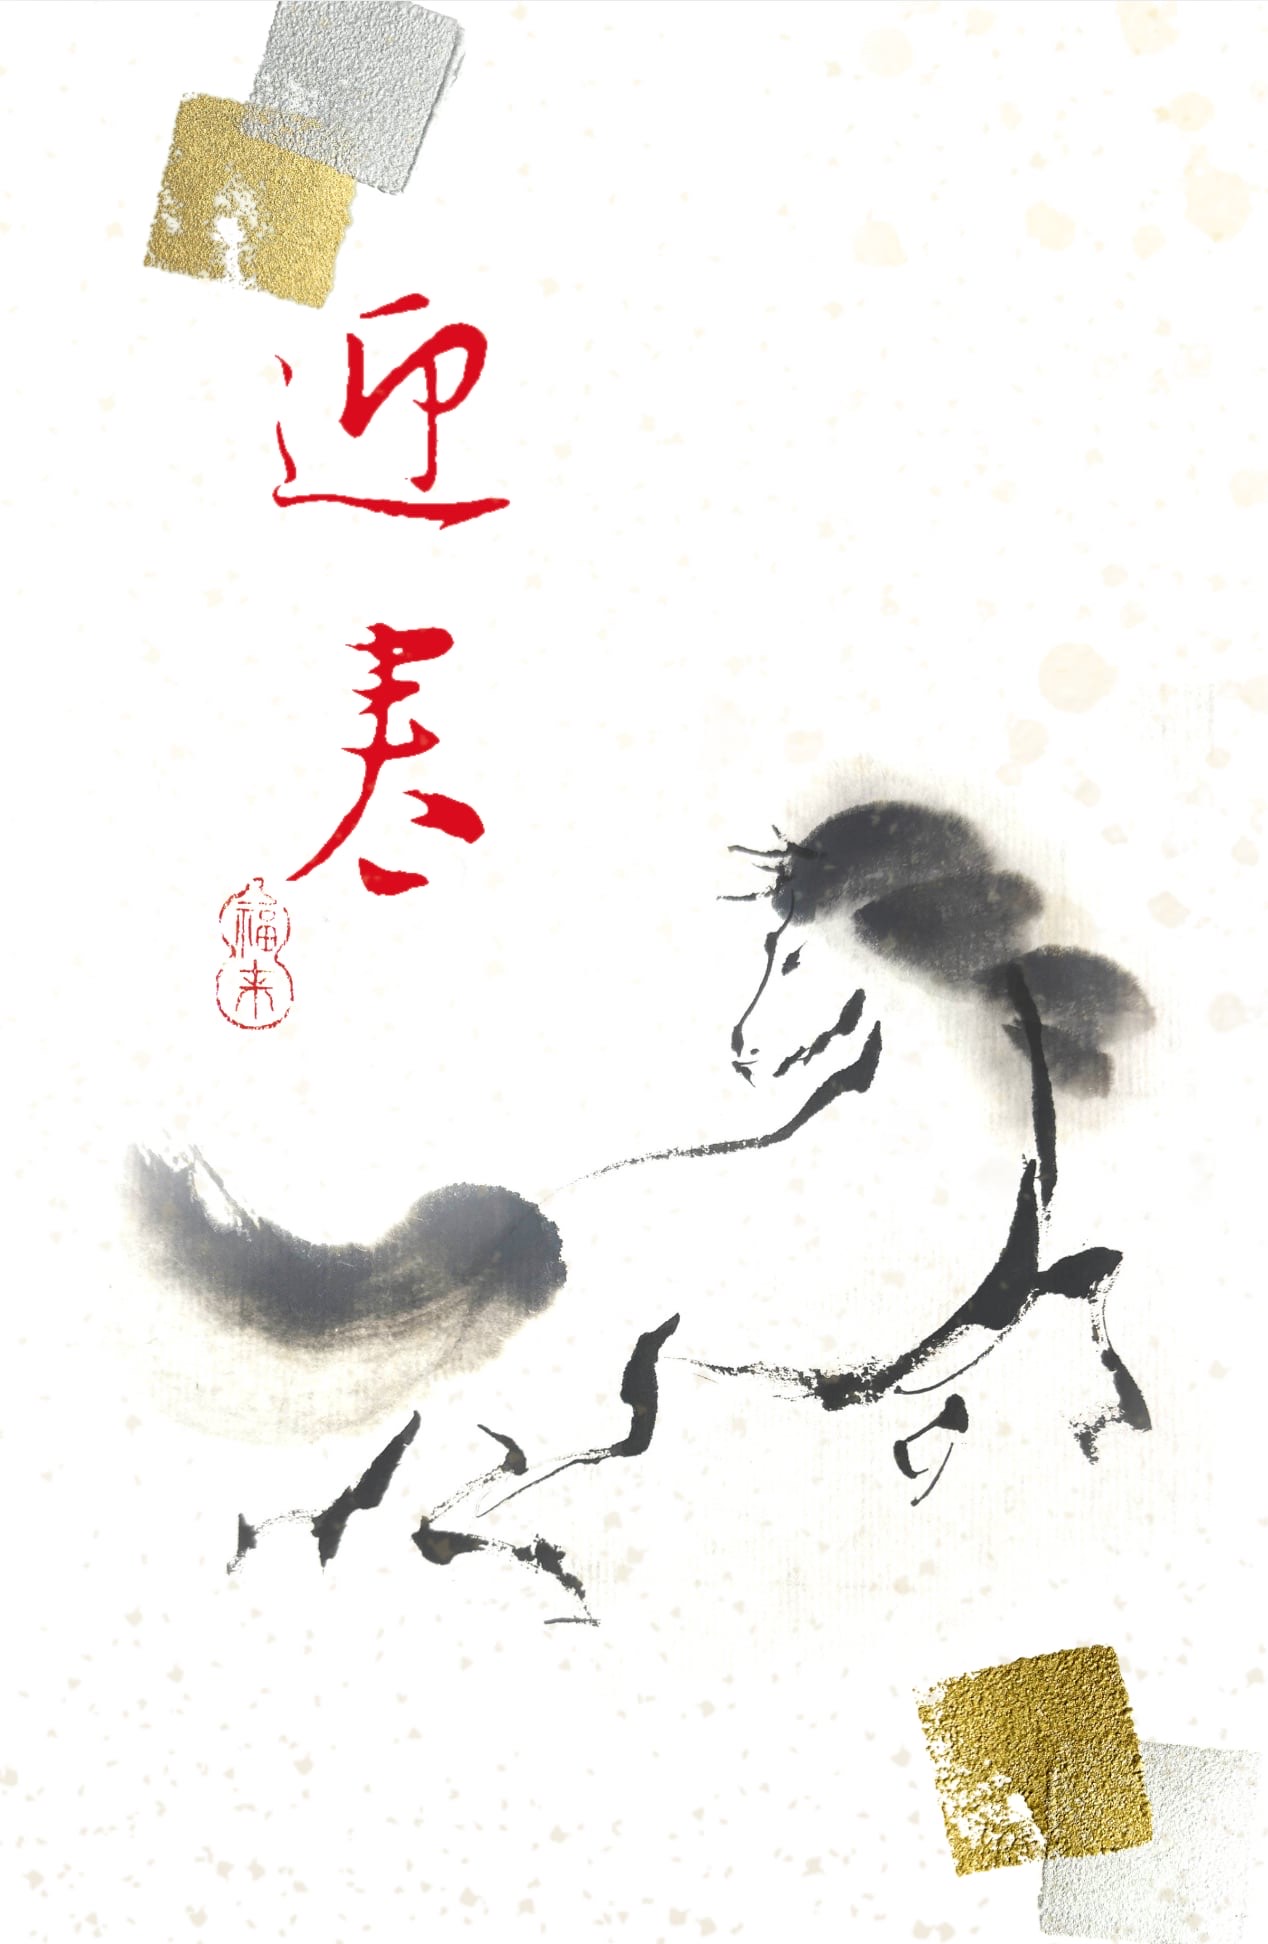 迎
春
福
来